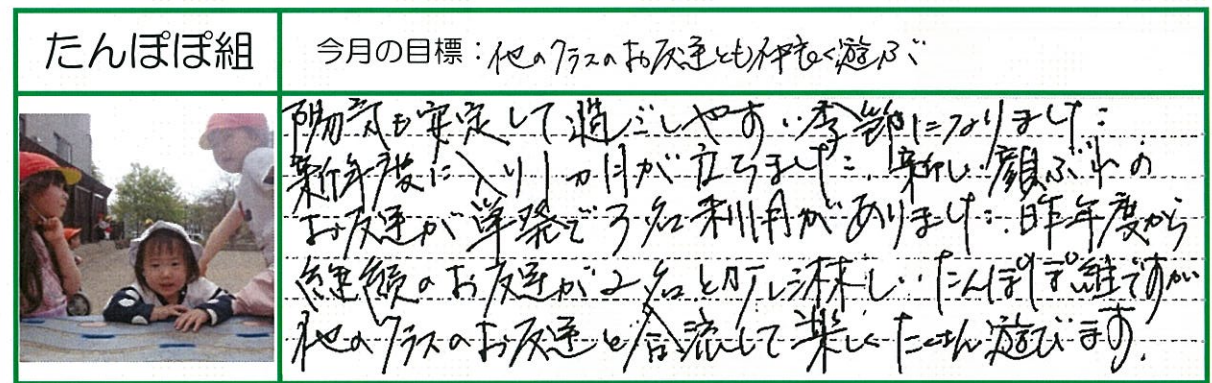 たんぽぽ組
今月の目標：他のクラスのお友達とも仲良く遊ぶ
陽気も安定して過ごしやすい季節になりました。
新年度に入り1ヵ月が立ちました。新しい顔ぶれの
お友達が単発で3名利用がありました。昨年度から
継続のお友達が2名と少し淋しいたんぽぽ組ですが
他のクラスのお友達と合流して楽しくたくさん遊びます。